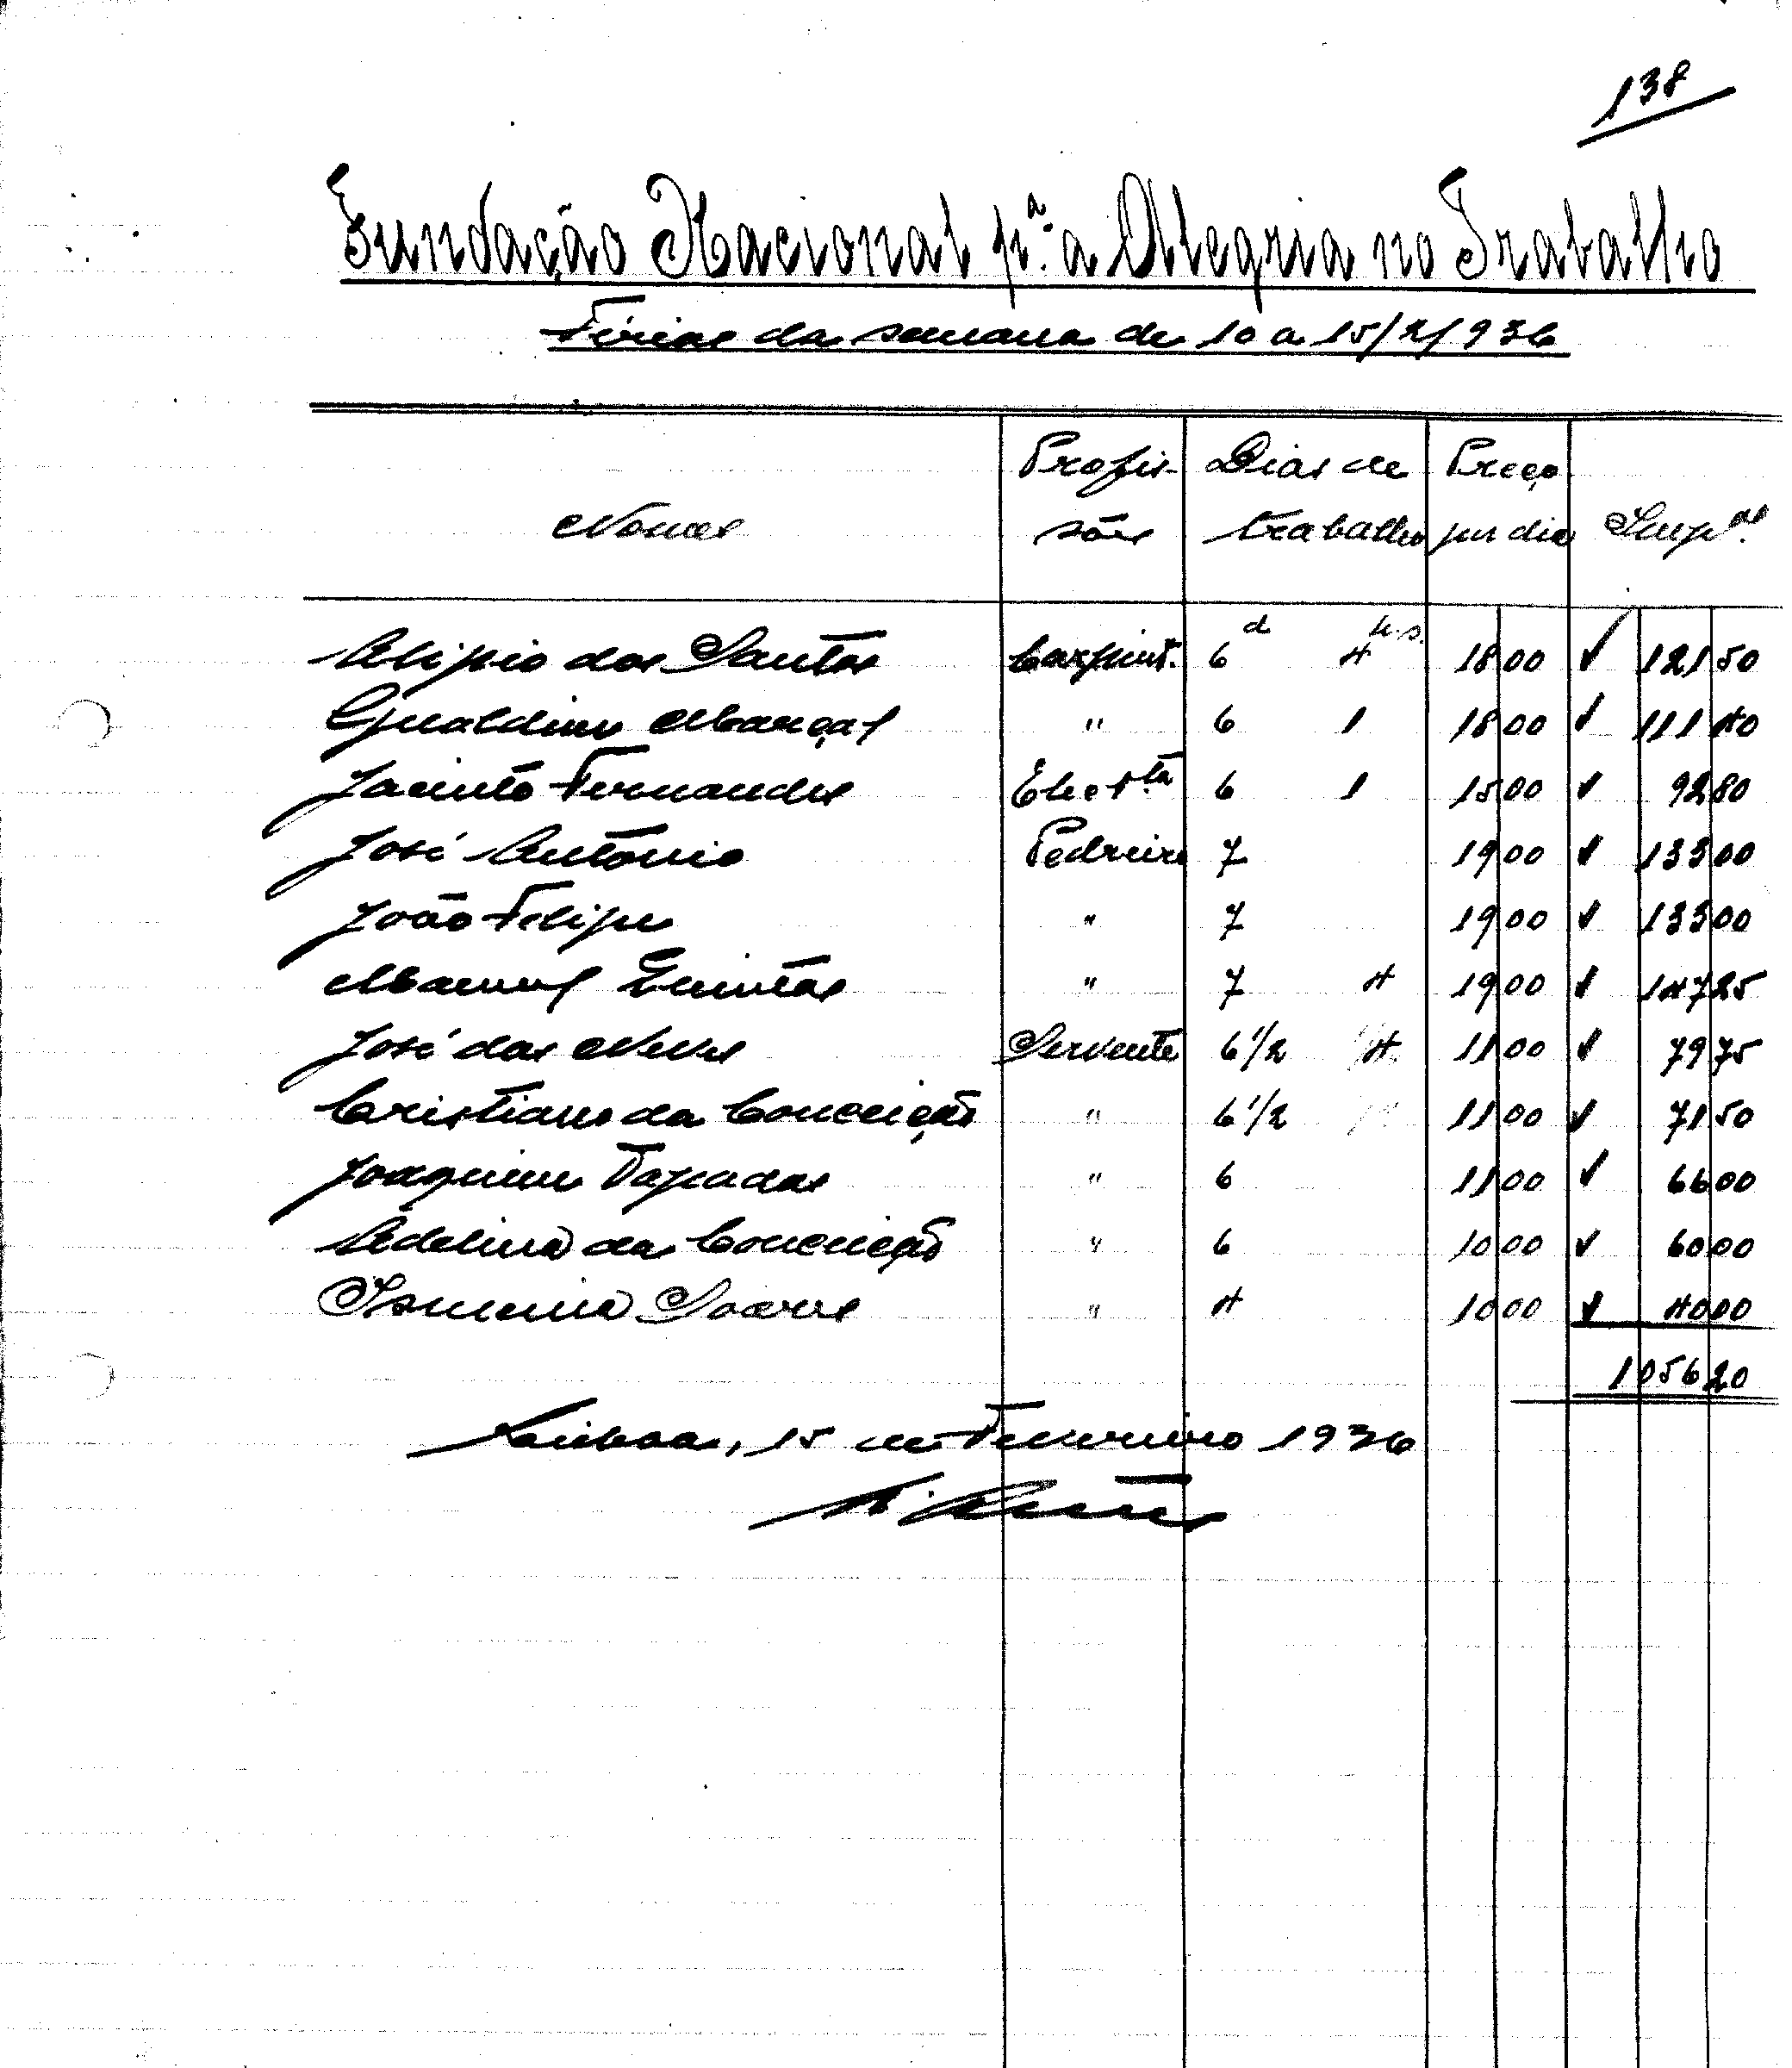 138
Fundação Nacional pª. a Alegria no Trabalho
Férias da semana de 10 a 15/2/936
Profis- Dias de Preço
Nomes sões trabalho por dia Impas.
d h.s.
Alipio dos Santos Carpint. 6 4 18 00 ✓ 121 50
Gualdino Marçal " 6 1 18 00 ✓ 111 40
Jacinto Fernandes Elect.ta 6 1 15 00 ✓ 92 80
José António Pedreiro 7 19 00 ✓ 133 00
João Felipe " 7 19 00 ✓ 133 00
Manuel " 7 4 19 00 ✓ 147 25
José das Neves Servente 6 1/2 4 11 00 ✓ 79 75
Cristiano da Conceição " 6 1/2 11 00 ✓ 71 50
Joaquim Tapadas " 6 11 00 ✓ 66 00
Adelina da Conceição " 6 10 00 ✓ 60 00
Ismenia Soares " 4 10 00 ✓ 40 00
1056 20
Lisboa, 15 de Fevereiro 1936